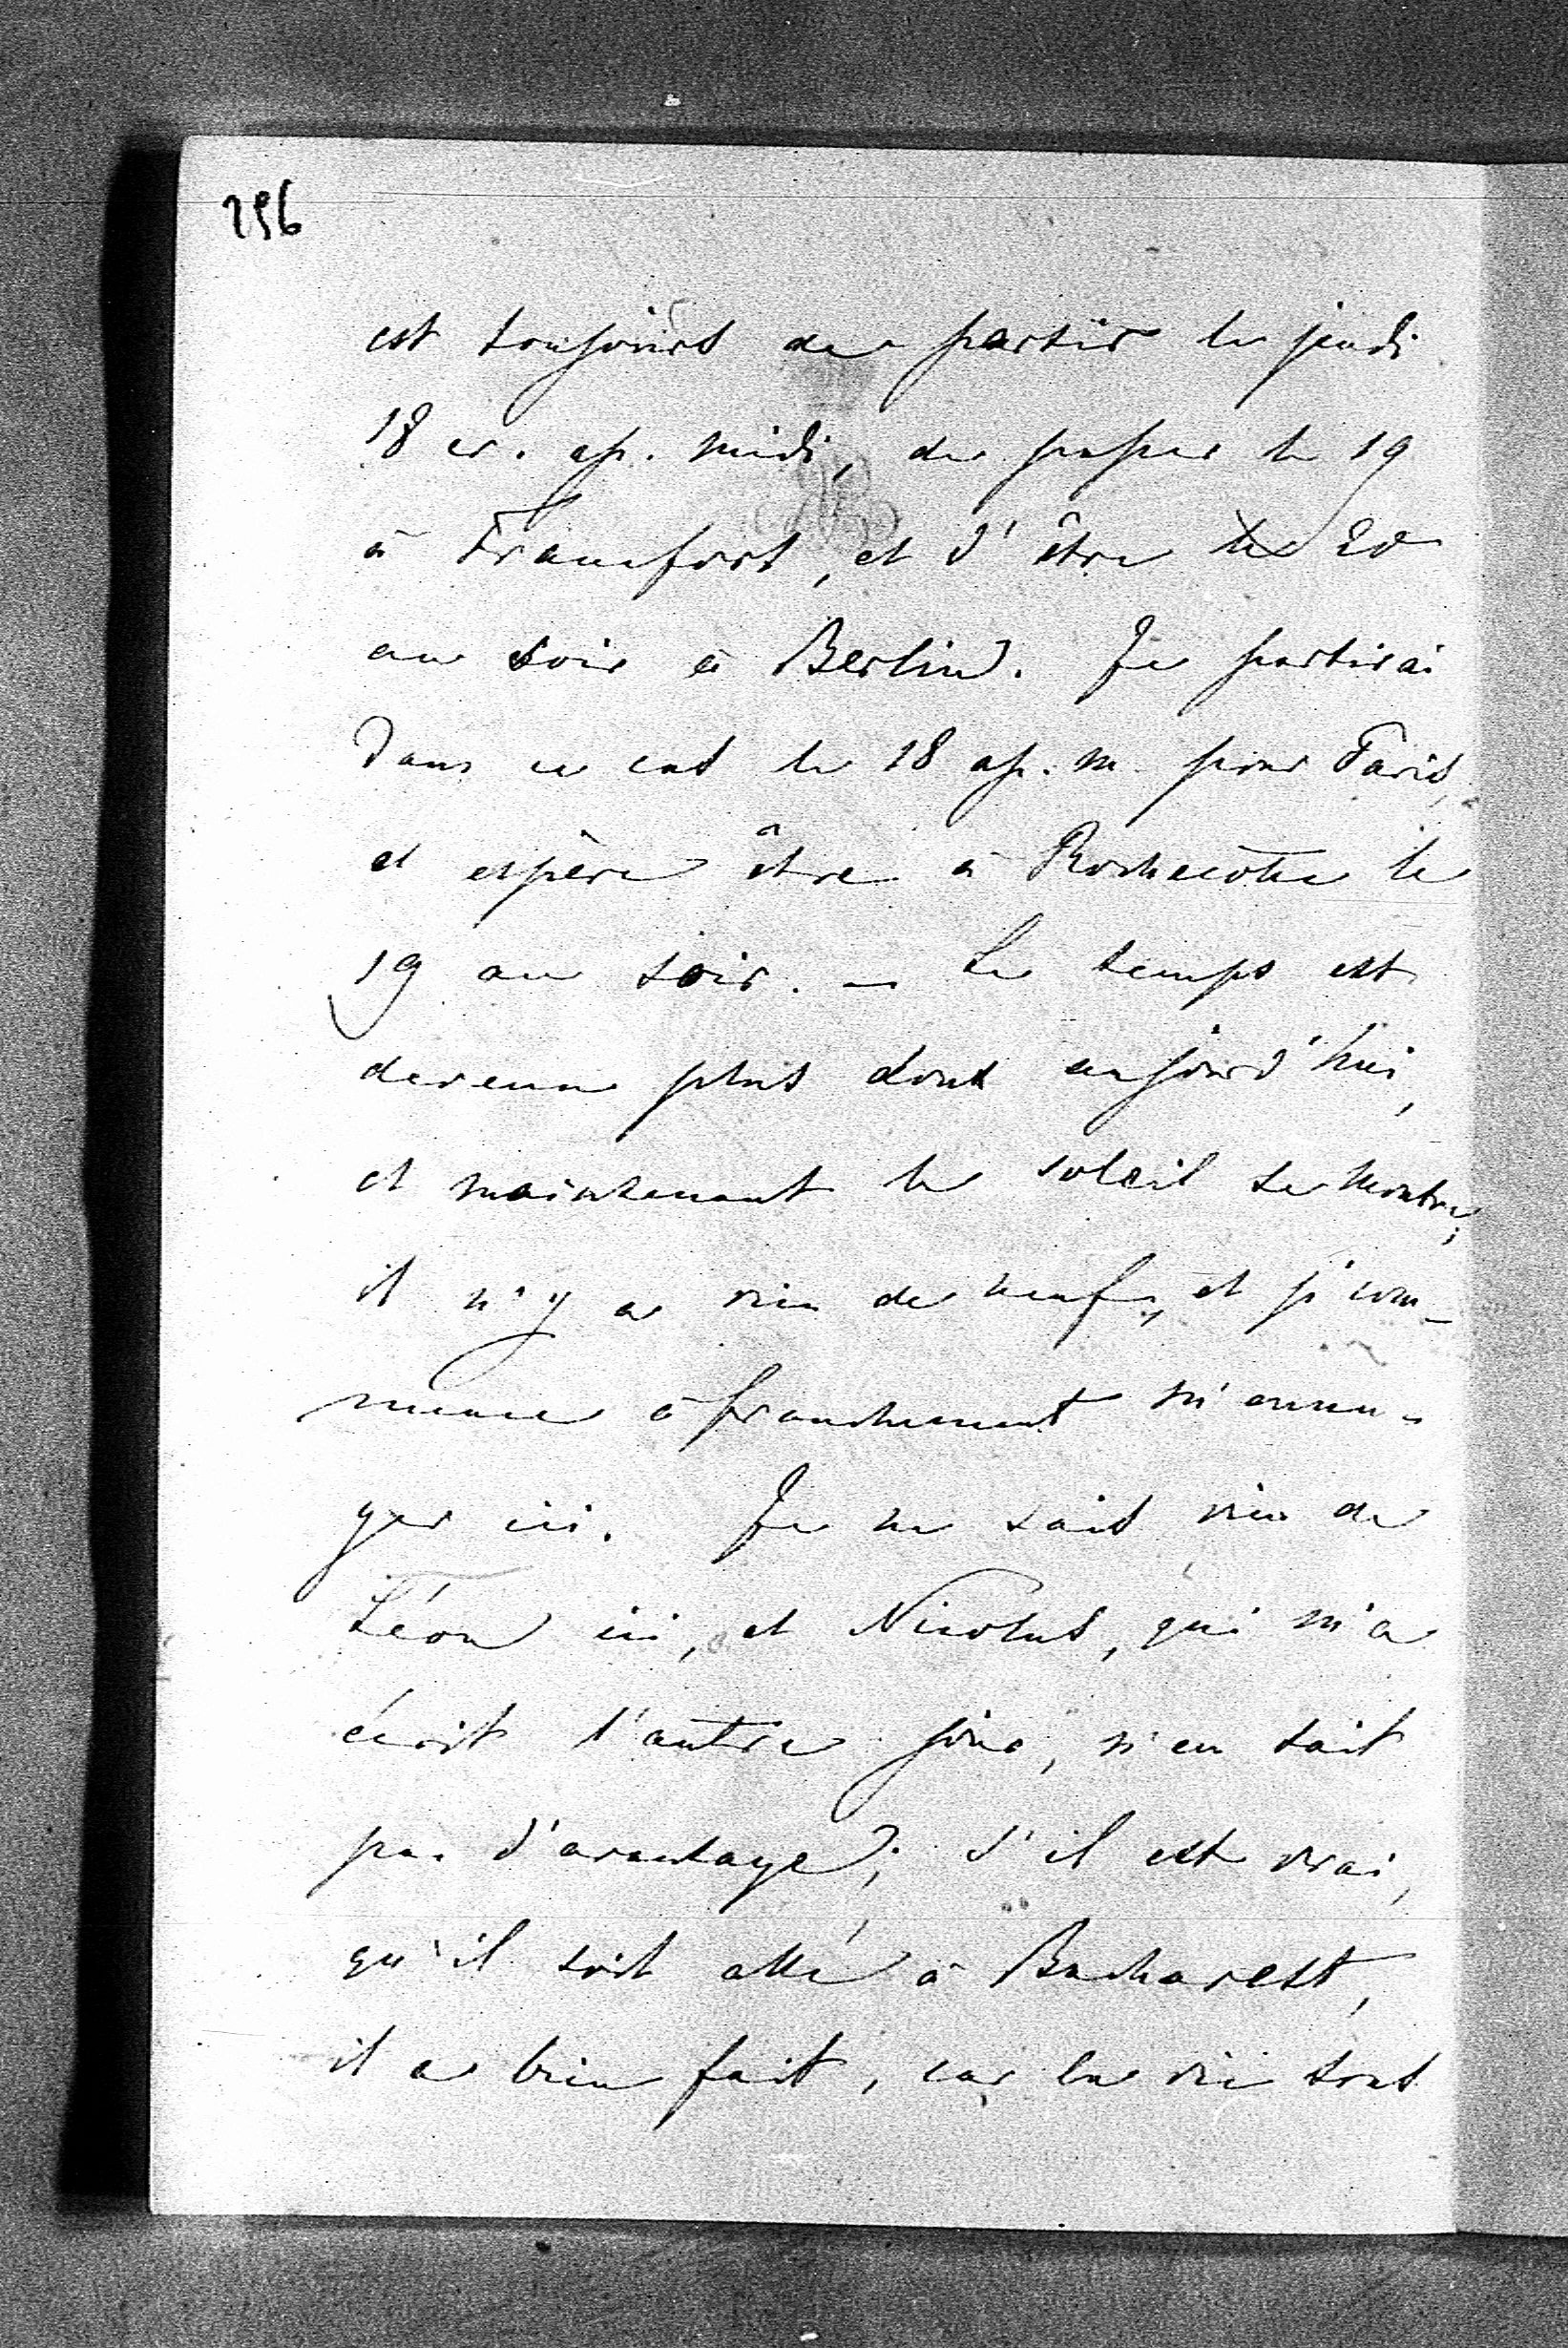 296
est toujours de partir le jeudi
18 cr. ap. midi, de passer le 19
à Francfort, et d'être le 20
au soir à Berlin. Je partirai
dans ce cas le 18 ap. m. pour Paris,
et espère être à Rochecotte le
19 au soir. — Le temps est
devenu plus doux aujourd'hui,
et maintenant le soleil se montre;
il n'y a rien de neuf, et je com-
mence à franchement m'ennu-
yer ici. Je ne sais rien de
Léon ici, et Nicolas, qui m'a
écrit l'autre jour, n'en sait
pas d'avantage; s'il est vrai,
qu'il soit allé à Bucharest,
il a bien fait, car la vie sous